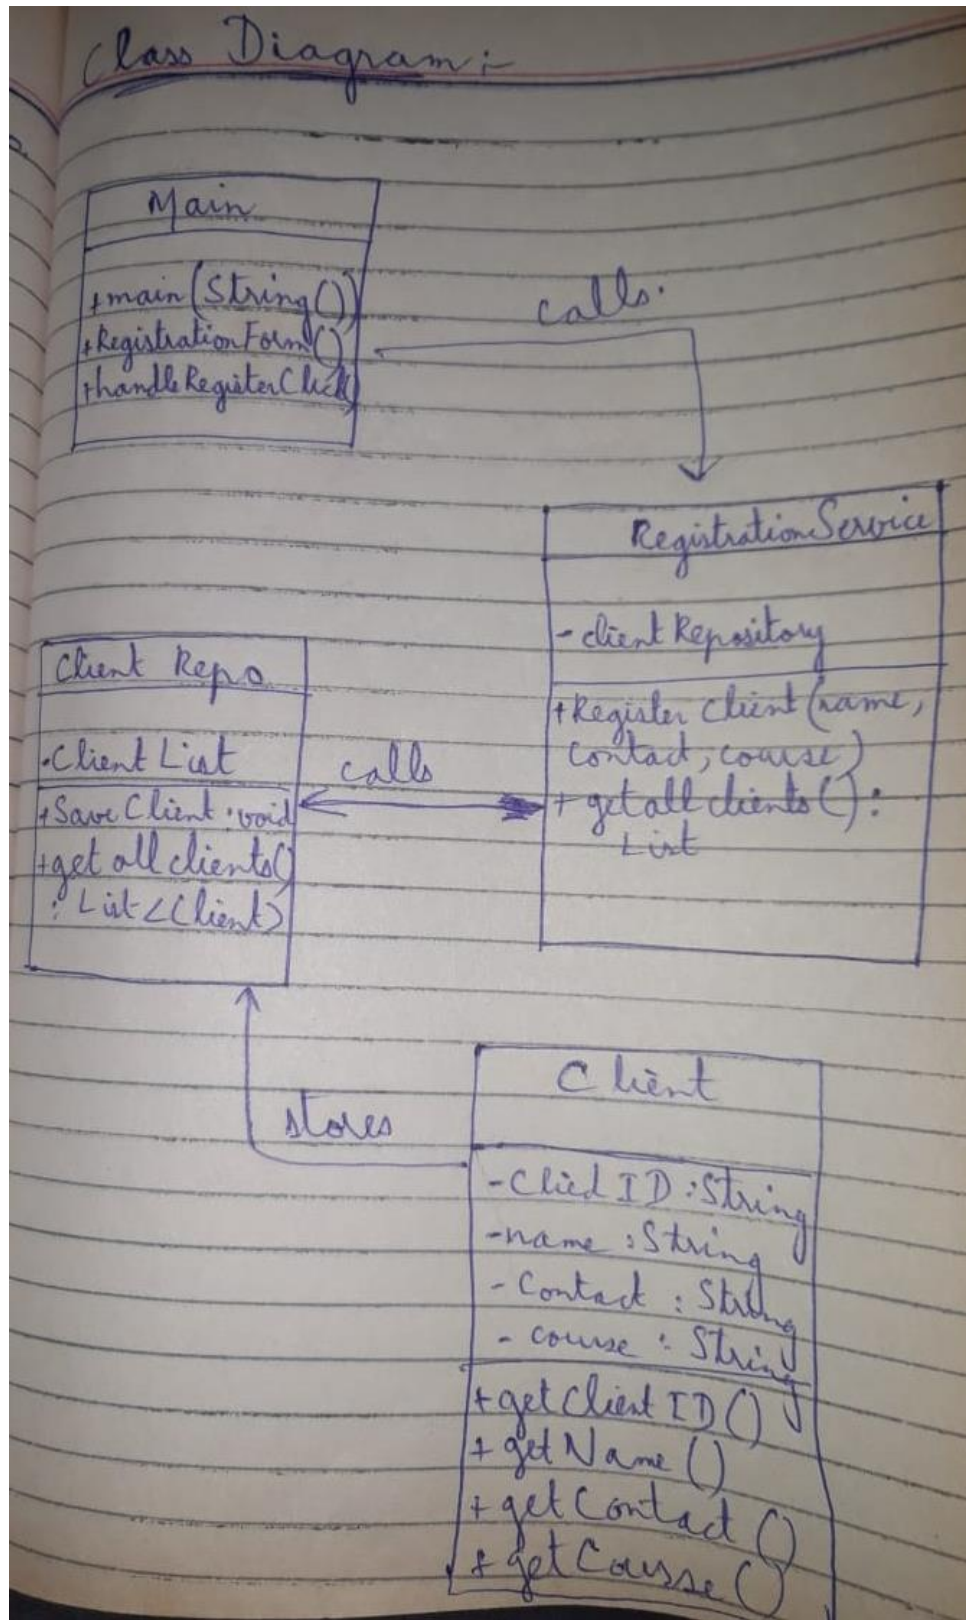 Class Diagram :-
Main
+main(String())
+RegistrationForm()
+handleRegisterClick)
calls.
RegistrationService
- clientRepository
+Register Client (name,
contact, course)
+ getall clients() :
List
Client Repo
-Client List
+Save Client : void
+get all clients()
: List<Client>
calls
stores
Client
-Clied ID :String
-name : String
- Contact : String
- course : String
+ getClient ID()
+ getName ()
+ getContact ()
+ getCousse ()